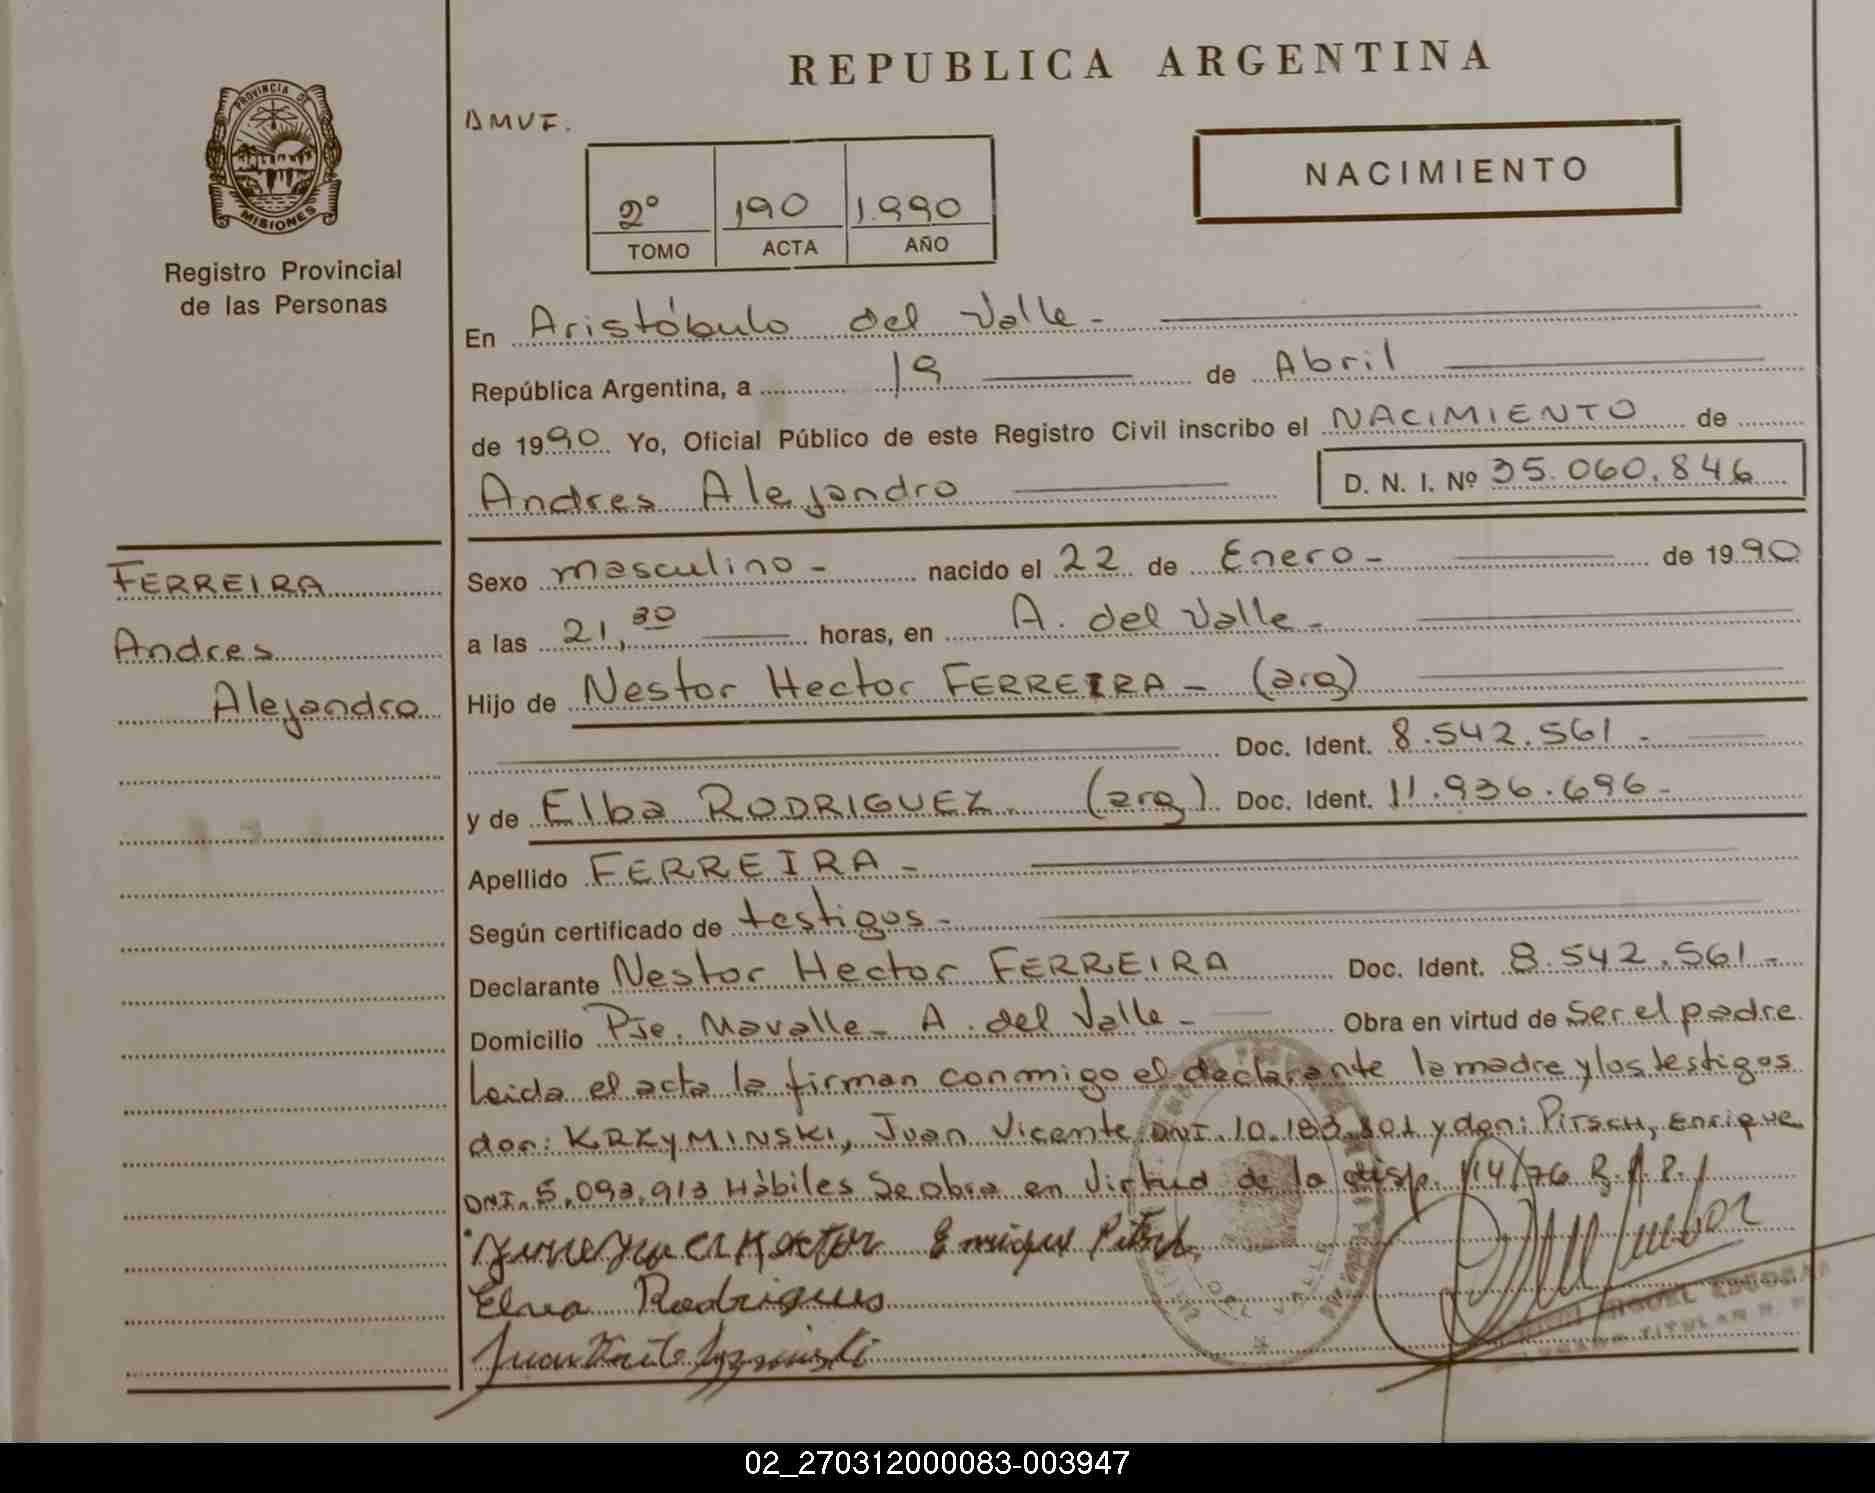 REPUBLICA ARGENTINA
PROVINCIA DE
MISIONES
Registro Provincial
de las Personas
AMVF.
NACIMIENTO
2° 190 1.990
TOMO ACTA AÑO
En Aristóbulo del Valle -
República Argentina, a 19 de Abril
de 1990 Yo, Oficial Público de este Registro Civil inscribo el NACIMIENTO de
Andres Alejandro D. N. I. Nº 35.060.846
FERREIRA
Andres
Alejandro
Sexo masculino - nacido el 22 de Enero - de 1990
a las 21,30 horas, en A. del Valle -
Hijo de Nestor Hector FERREIRA - (arg)
Doc. Ident. 8.542.561 -
y de Elba RODRIGUEZ - (arg) Doc. Ident. 11.936.696 -
Apellido FERREIRA -
Según certificado de testigos -
Declarante Nestor Hector FERREIRA Doc. Ident. 8.542.561 -
Domicilio Pje. Mavalle - A. del Valle - Obra en virtud de Ser el padre
Leida el acta la firman conmigo el declarante la madre y los testigos
don: KRZYMINSKI, Juan Vicente DNI. 10.183.801 y don: PIRSCH, Enrique
DNI. 5.093.913 Hábiles Se obra en Virtud de la disp. 114/76 R.P.P.
Hector Enrique Pirsch
Elva Rodrigues
Juan
DEL VALLE
MIGUEL
TITULAR
02_270312000083-003947